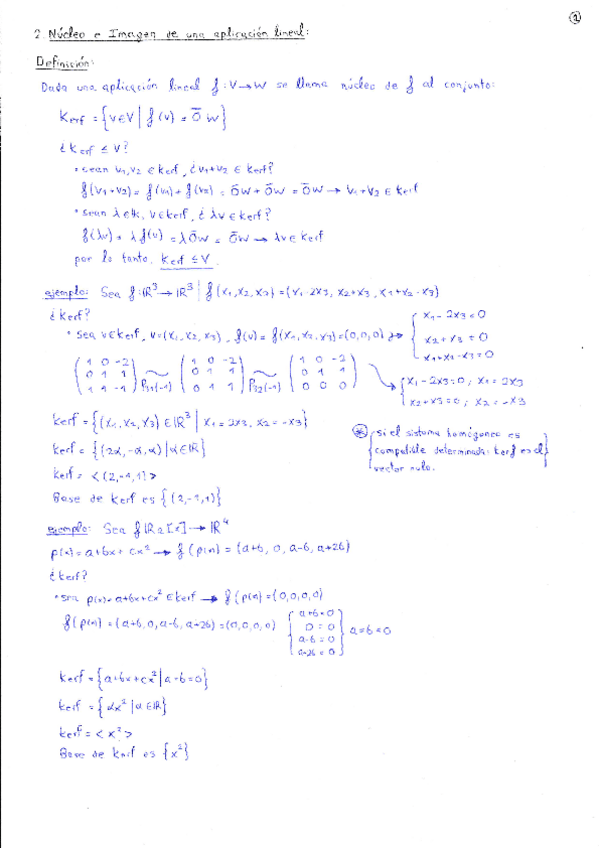 1
2. Núcleo e Imagen de una aplicación lineal:
Definición:
Dada una aplicación lineal f: V→W se llama núcleo de f al conjunto:
Kerf = {v∈V | f(v) = 0̄w}
¿Kerf ≤ V?
• sean v1,v2 ∈ Kerf, ¿v1+v2 ∈ Kerf?
f(v1+v2) = f(v1) + f(v2) = 0̄w + 0̄w = 0̄w → v1+v2 ∈ Kerf
• sean λ∈K, v∈Kerf, ¿λv ∈ Kerf?
f(λv) = λ f(v) = λ0̄w = 0̄w → λv ∈ Kerf
por lo tanto, Kerf ≤ V
ejemplo: Sea f: ℝ³ → ℝ³ | f(x1, x2, x3) = (x1-2x3, x2+x3, x1+x2-x3)
¿Kerf?
• sea v∈Kerf, v=(x1, x2, x3), f(v) = f(x1, x2, x3) = (0,0,0) →
x1-2x3=0
x2+x3=0
x1+x2-x3=0
(1 0 -2 / 0 1 1 / 1 1 -1) ~ P31(-1) (1 0 -2 / 0 1 1 / 0 1 1) ~ P32(-1) (1 0 -2 / 0 1 1 / 0 0 0)
x1-2x3=0; x1=2x3
x2+x3=0; x2=-x3
Kerf = {(x1, x2, x3) ∈ ℝ³ | x1=2x3, x2=-x3}
Kerf = {(2α, -α, α) | α∈ℝ}
Kerf = <(2,-1,1)>
Base de Kerf es {(2,-1,1)}
* si el sistema homógeneo es
compatible determinado: Kerf es el
vector nulo.
ejemplo: Sea f ℝ2[x] → ℝ⁴
p(x) = a+bx+cx² → f(p(x)) = (a+b, 0, a-b, a+2b)
¿Kerf?
• sea p(x)=a+bx+cx² ∈ Kerf → f(p(x)) = (0,0,0,0)
f(p(x)) = (a+b, 0, a-b, a+2b) = (0,0,0,0)
a+b=0
0=0
a-b=0
a+2b=0
a=b=0
Kerf = {a+bx+cx² | a=b=0}
Kerf = {αx² | α∈ℝ}
Kerf = <x²>
Base de Kerf es {x²}